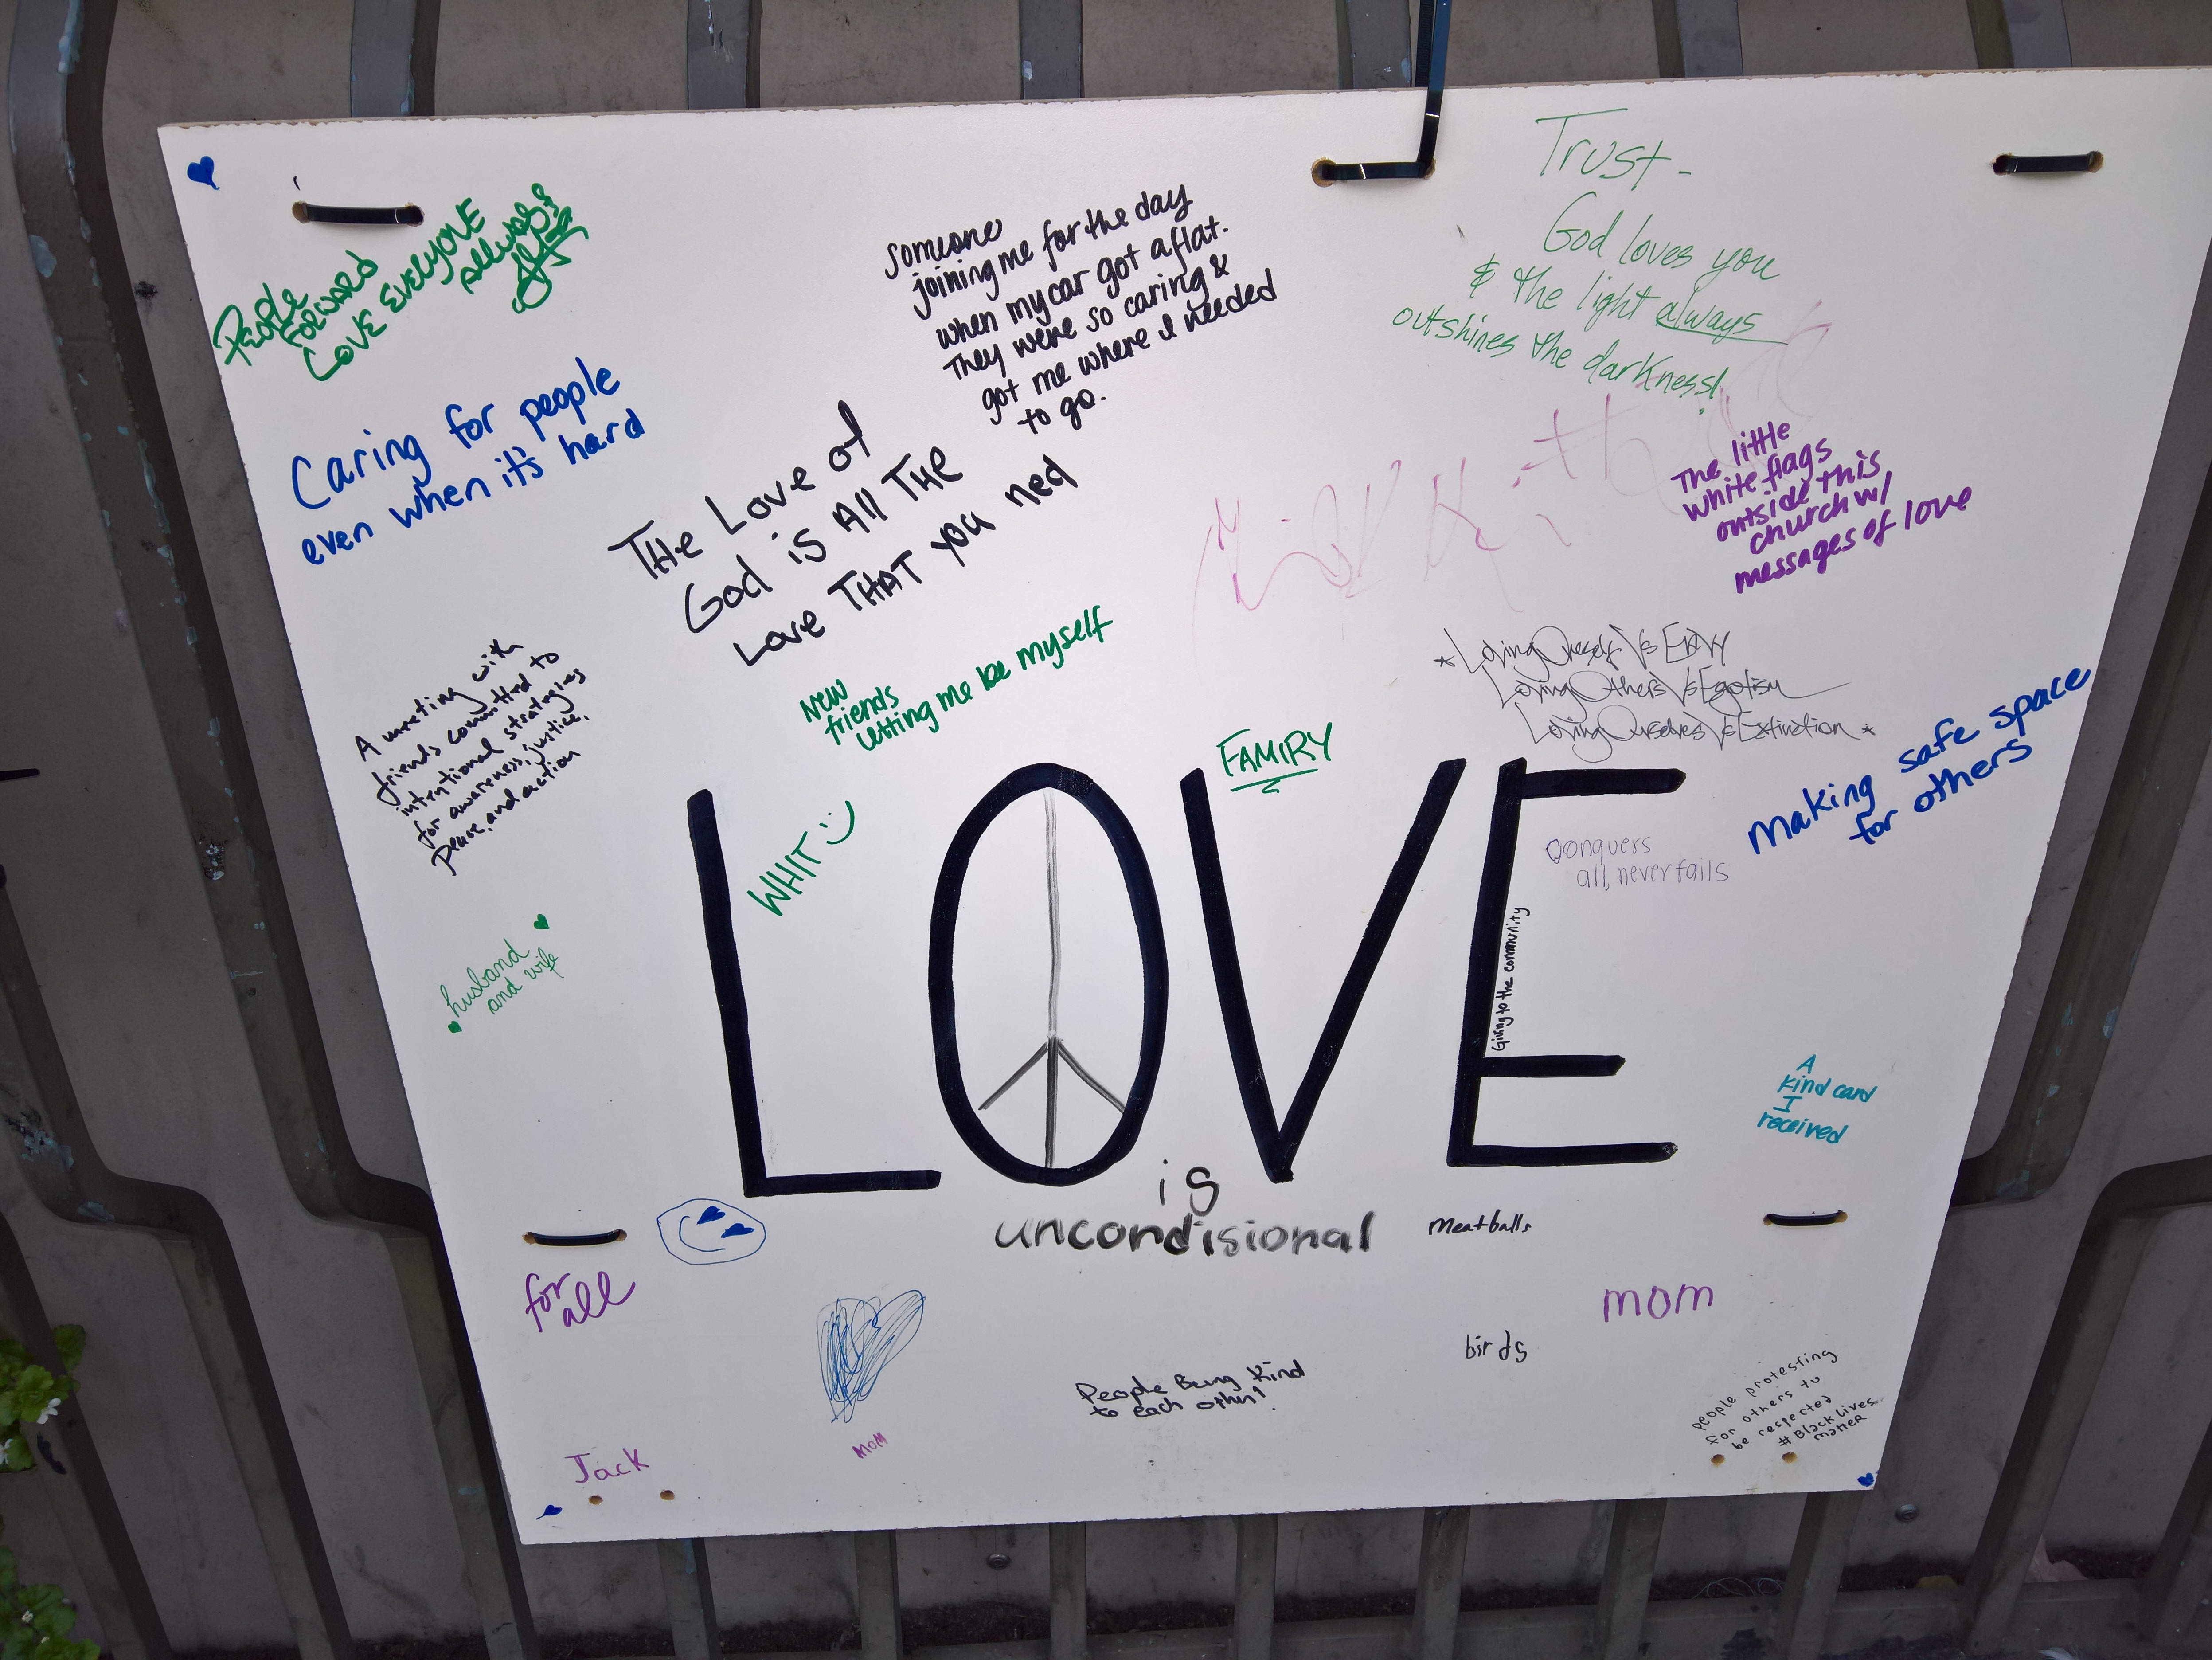 People
Forward
Love Everyone
Always
Caring for people
even when it's hard
someone
joining me for the day
when my car got a flat.
They were so caring &
got me where I needed
to go.
Trust -
God loves you
& the light always
outshines the darkness!
THe Love of
God is All THe
Love THAT you ned
The little
white flags
outside this
church w/
messages of love
A meeting with
friends committed to
intentional strategies
for awareness, justice,
peace, and action
New
friends
letting me be myself
FAMIRY
*Loving Oneself Vs Envy
Loving Others Vs Egotism
Loving Ourselves Vs Extinction *
Making safe space
for others
WHIT :)
LOVE
Conquers
all, never fails
Giving to the community
husband
and wife
A
kind card
I
received
is
uncondisional
meatballs
for
all
mom
birds
People Being Kind
to each other!
people protesting
for others to
be respected
#Black lives
matter
Jack
MOM